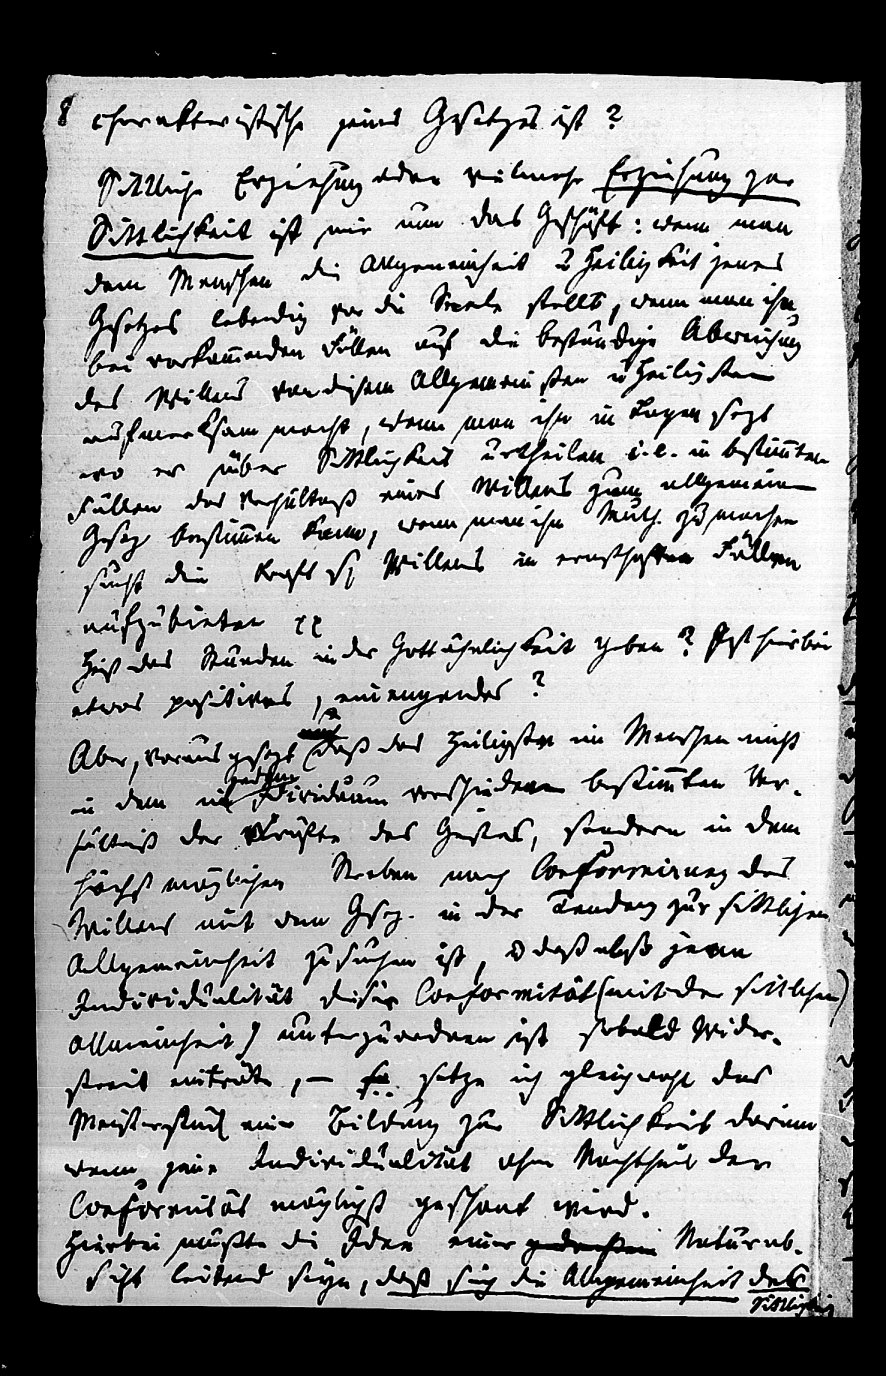 8 charakteristische jenes Gesetzes ist?
Sittliche Erziehung oder vielmehr Erziehung zur
Sittlichkeit ist mir nun das Geschäft: wenn man
dem Menschen die Allgemeinheit u Heiligkeit jenes
Gesetzes lebendig vor die Seele stellt, wenn man ihn
bei vorkom̄enden Fällen auf die beständige Abweichung
des Willens von diesem Allgemeinsten u Heiligsten
aufmerksam macht, wenn man ihn in Lagen sezt
wo er über Sittlichkeit urtheilen i.e. in bestim̄ten
Fällen das Verhältniß eines Willens zum allgemeinen
Gesez bestim̄en kann, wenn man ihm Muth zu machen
sucht die Kraft s. Willens in ernsthaften Fällen
aufzubieten
Heist das Stunden in der Gottähnlichkeit geben? Ist hierbei
etwas positives, einengendes?
Aber, voraus gesezt daß das Heiligste im Menschen nicht
in dem in jedem Individuum verschieden bestim̄ten Ver-
hältniß der Kräfte des Geistes, sondern in dem
höchst möglichen Streben nach Conformirung des
Willens mit dem Gesez. in der Tendenz zur sittlichen
Allgemeinheit zu suchen ist, daß also jene
Individualität dieser Conformität (mit der sittlichen
Allmeinheit) unterzuordnen ist sobald Wider-
streit einträte, — setze ich gleichwohl das
Meisterstück einer Bildung zur Sittlichkeit darinn
wenn jene Individualität ohne Nachtheil der
Conformität möglichst geschont wird.
Hierbei müßte die Idee einer gedachten Naturab-
sicht leitend seyn, daß sich die Allgemeinheit des
Sittlichen